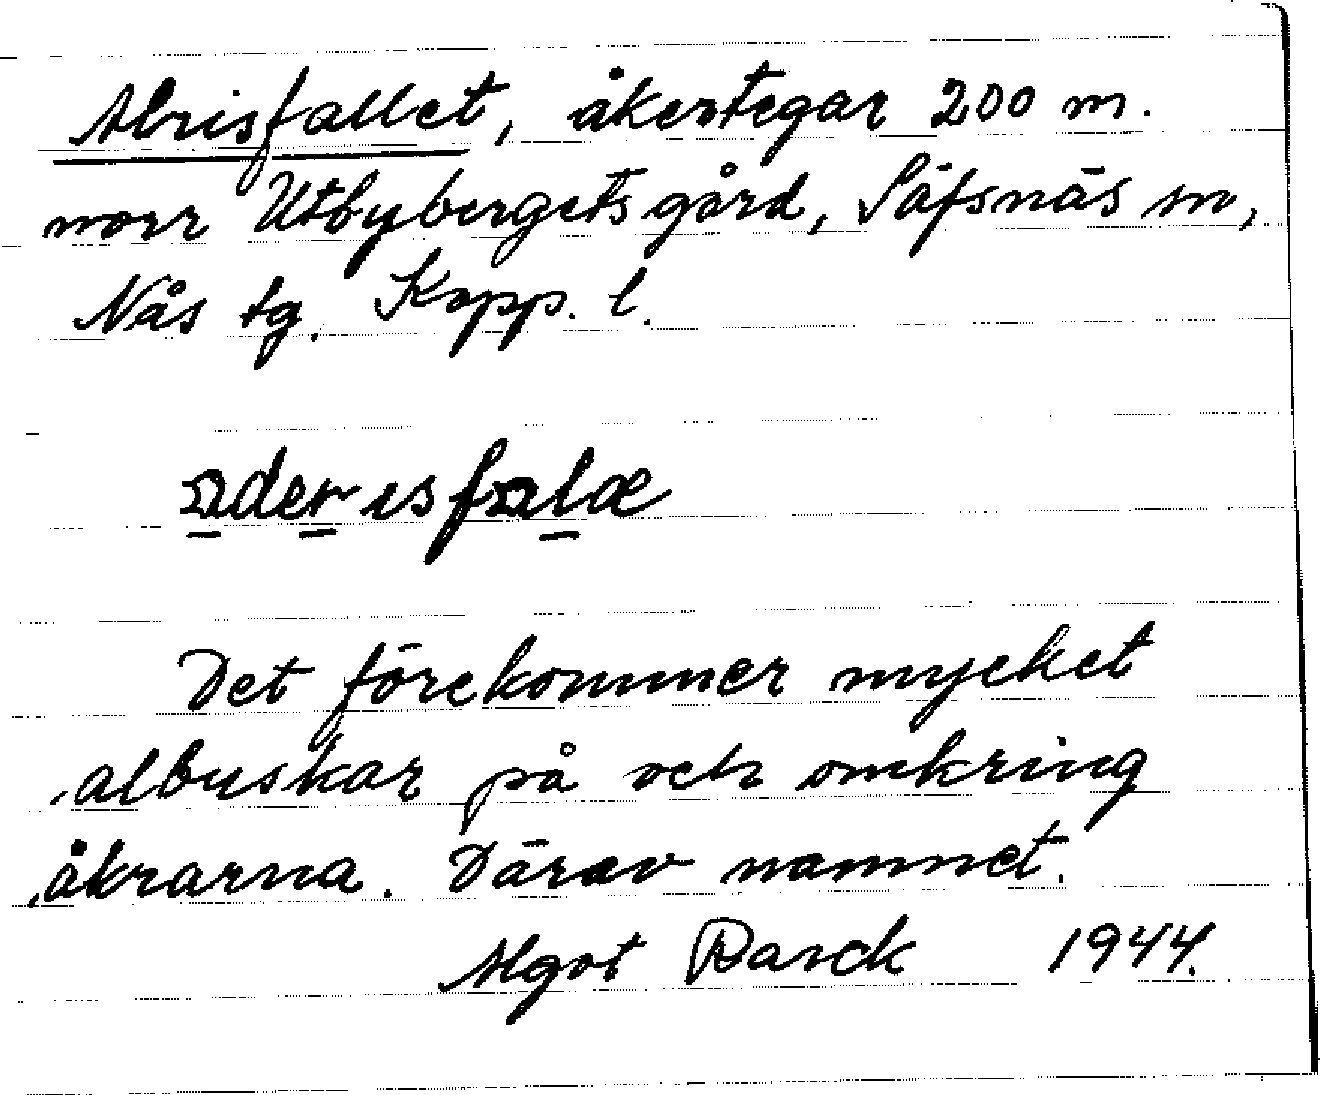 Alrisfallet, åkertegar 200 m.
norr Utbybergets gård, Säfsnäs sn,
Nås tg. Kopp. l.
Det förekommer mycket
albuskar på och omkring
åkrarna. Därav namnet.
Algot Barck 1944.